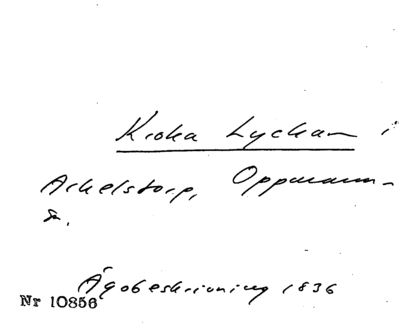 Kroka Lyckan i
Arkelstorp, Oppmann-
a.
Ägobeskrivning 1836
Nr 10856